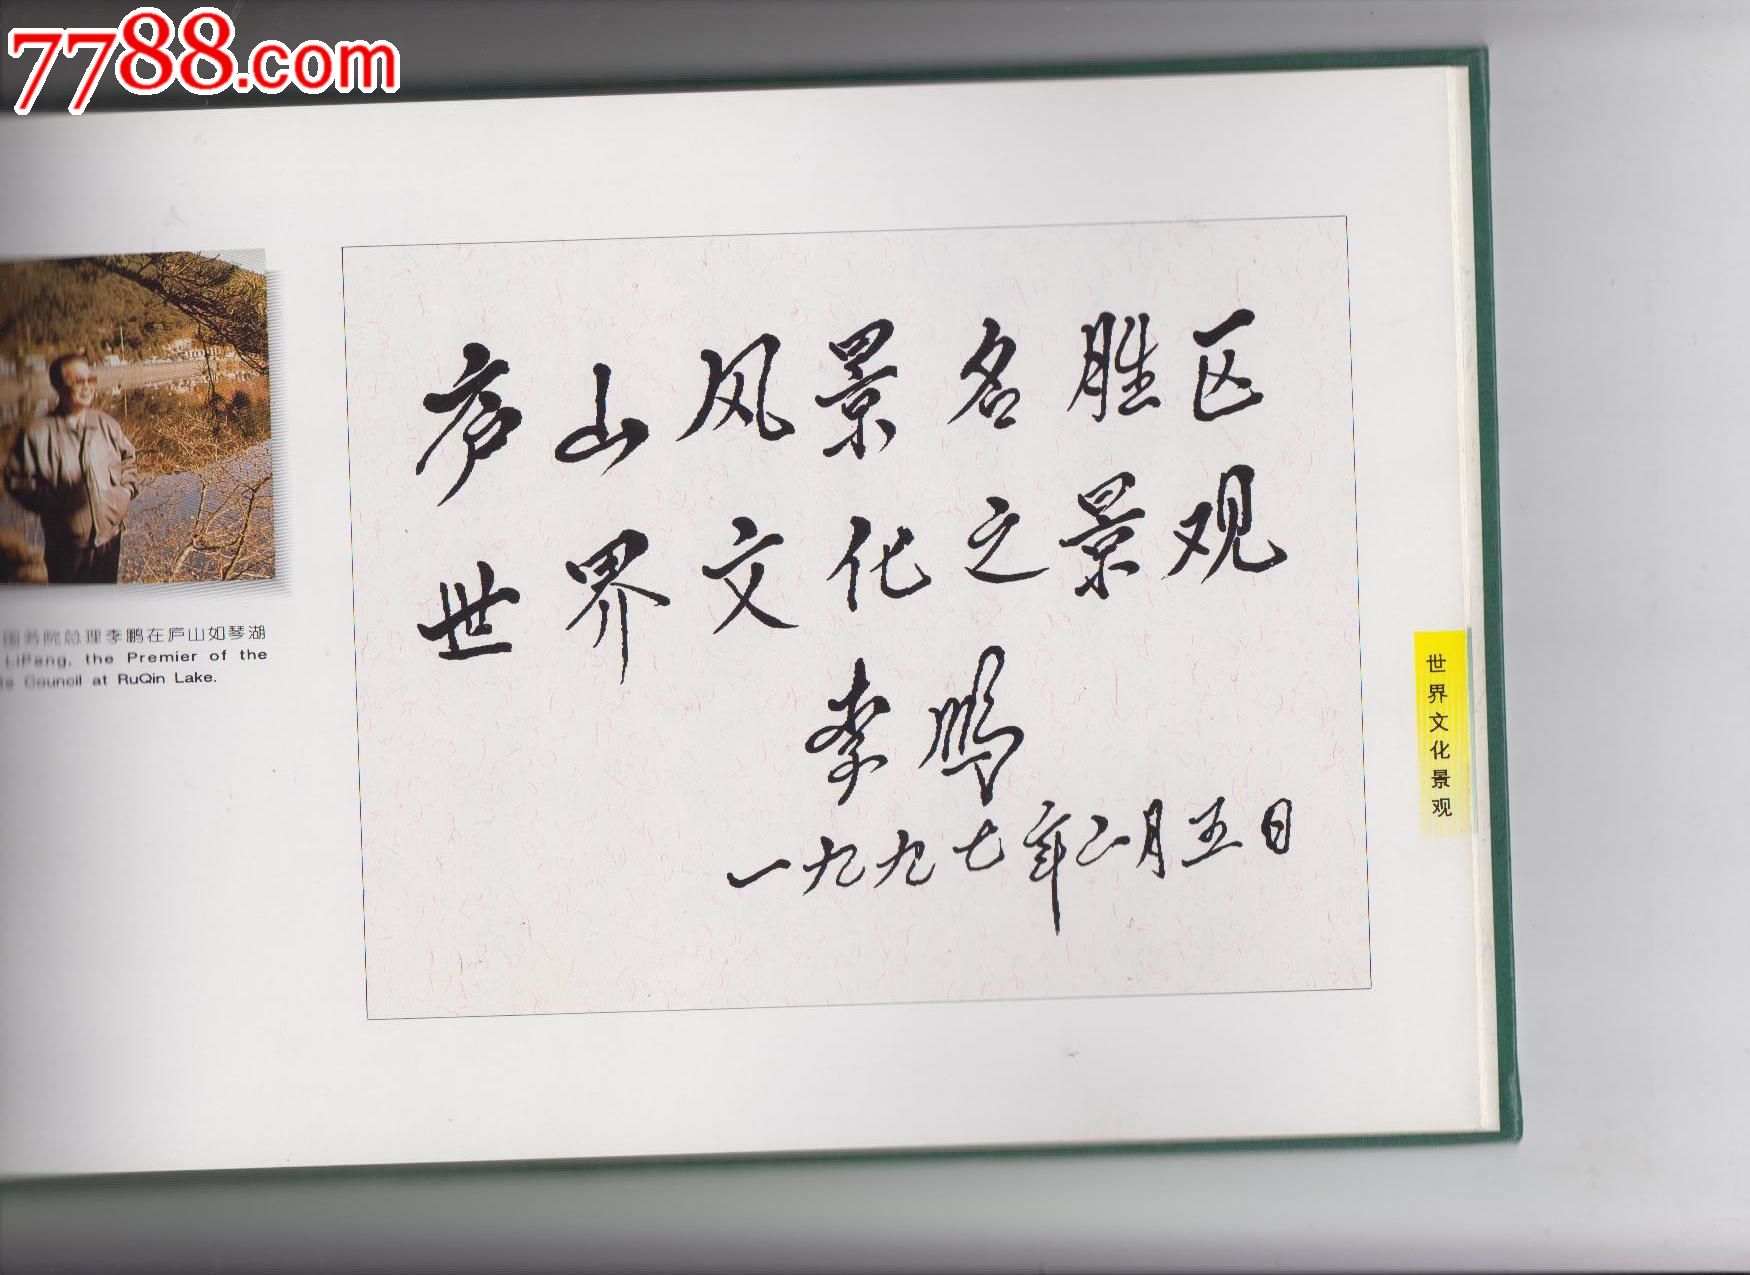 7788.com
庐山风景名胜区
世界文化之景观
李鹏
一九九七年二月五日
国务院总理李鹏在庐山如琴湖
LiPeng, the Premier of the
Council at RuQin Lake.
世界文化景观